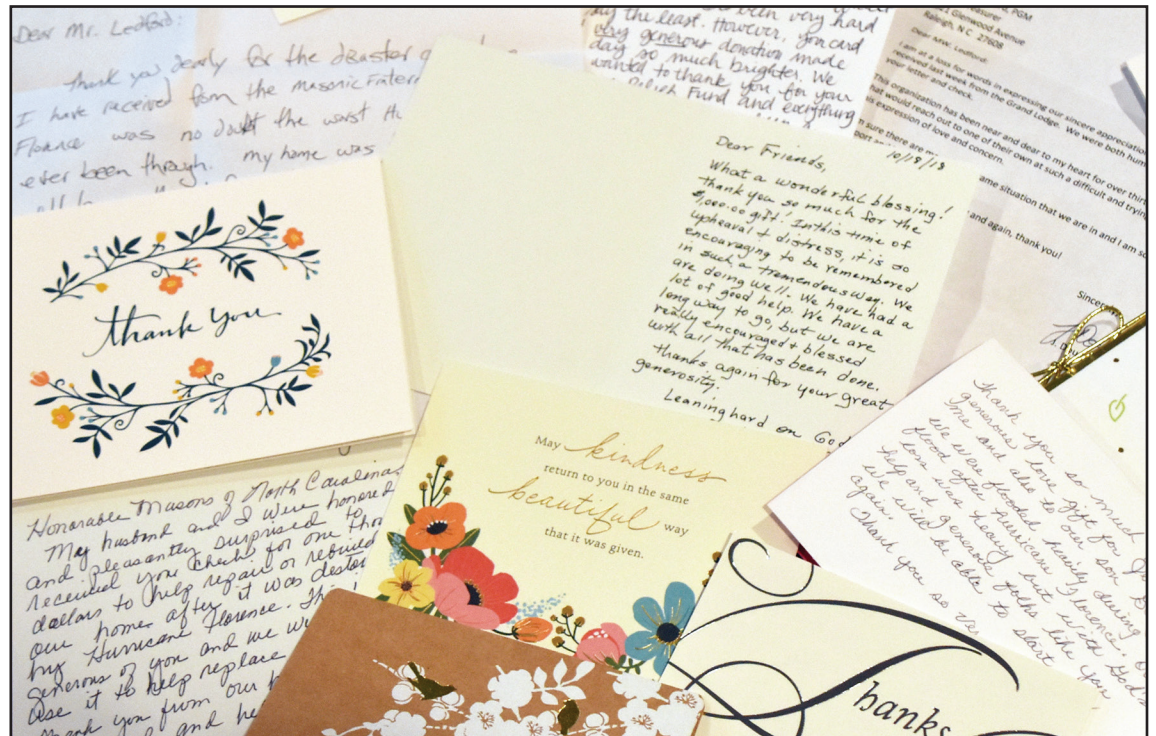 Dear Mr. Ledford:
Thank you dearly for the disaster
I have received from the Masonic Frater
Florence was no doubt the worst Hu
ever been through. My home was
been very hard
day the least. However, you and
very generous donation made
day so much brighter. We
wanted to thank you for your
Relief Fund and everything
easurer
, PGM
21 Glenwood Avenue
Raleigh, NC 27608
Dear MW. Ledford:
I am at a loss for words in expressing our sincere appreciation
received last week from the Grand Lodge. We were both hum
your letter and check.
This organization has been near and dear to my heart for over thirt
hat would reach out to one of their own at such a difficult and trying
is expression of love and concern.
m sure there are m
port an
ame situation that we are in and I am so
and again, thank you!
Sincere
10/18/18
Dear Friends,
What a wonderful blessing!
Thank you so much for the
,000.00 gift! In this time of
upheaval & distress, it is so
encouraging to be remembered
in such a tremendous way. We
are doing well. We have had a
lot of good help. We have a
long way to go, but we are
really encouraged & blessed
with all that has been done.
Thanks again for your great
generosity.
Leaning hard on God
thank you
May kindness
return to you in the same
beautiful way
that it was given.
Honorable Masons of North Carolina,
My husband and I were honored
and pleasantly surprised to
received your checks for one thou
dollars to help repair or rebuild
our homes after it was destor
by Hurricane Florence. Thi
generous of you and we wi
use it to help replace
Thank you from our h
and he
Thank you so much
generous love gift for
me and also to my son
We were flooded
flood after Hurricane Florence.
loss was heavy but with God's
help and generous folks like you
we will be able to start
again.
Thank you so ver
Thanks